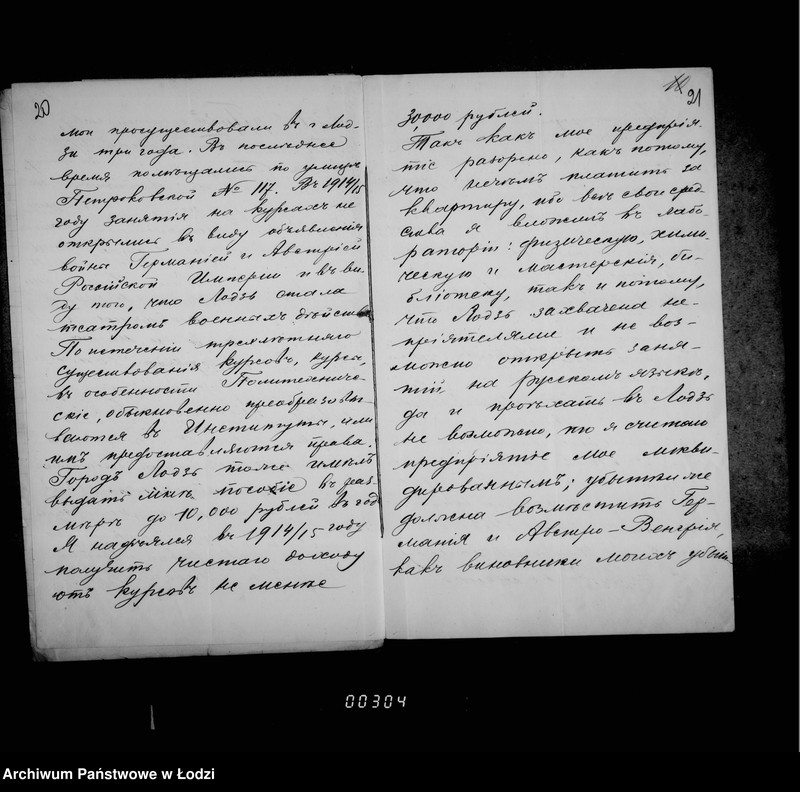 20
мои просуществовали въ г. Лод-
зи три года. Въ последнее
время помѣщались по улицѣ
Петроковской № 117. Въ 1914/15
году занятія на курсахъ не
открылись въ виду объявленія
войны Германіей и Австріей
Россійской Имперіи и въ ви-
ду того, что Лодзь стала
театромъ военныхъ дѣйствій
По истеченіи трехлѣтняго
существованія курсовъ, курсы,
въ особенности Политехниче-
скіе, обыкновенно преобразовы-
ваются въ Институты, или
имъ предоставляются права.
Городъ Лодзь тоже имѣлъ
выдать мнѣ пособіе въ раз-
мѣрѣ до 10,000 рублей въ годъ
Я надѣялся въ 1914/15 году
получить чистаго доходу
отъ курсовъ не менѣе
21
30,000 рублей.
Такъ какъ мое предпрія-
тіе разорено, какъ потому,
что нечѣмъ платить за
квартиру, ибо всѣ свои сред-
ства я вложилъ въ лабо-
раторіи: физическую, хими-
ческую и мастерскія, би-
бліотеку, такъ и потому,
что Лодзь захвачена не-
пріятелями и не воз-
можно открыть заня-
тій на русскомъ языкѣ,
да и проѣхать въ Лодзь
не возможно, то я считаю
предпріятіе мое ликви-
дированнымъ; убытки же
должна возмѣстить Гер-
манія и Австро-Венгрія,
какъ виновники моихъ убыт
00304
Archiwum Państwowe w Łodzi